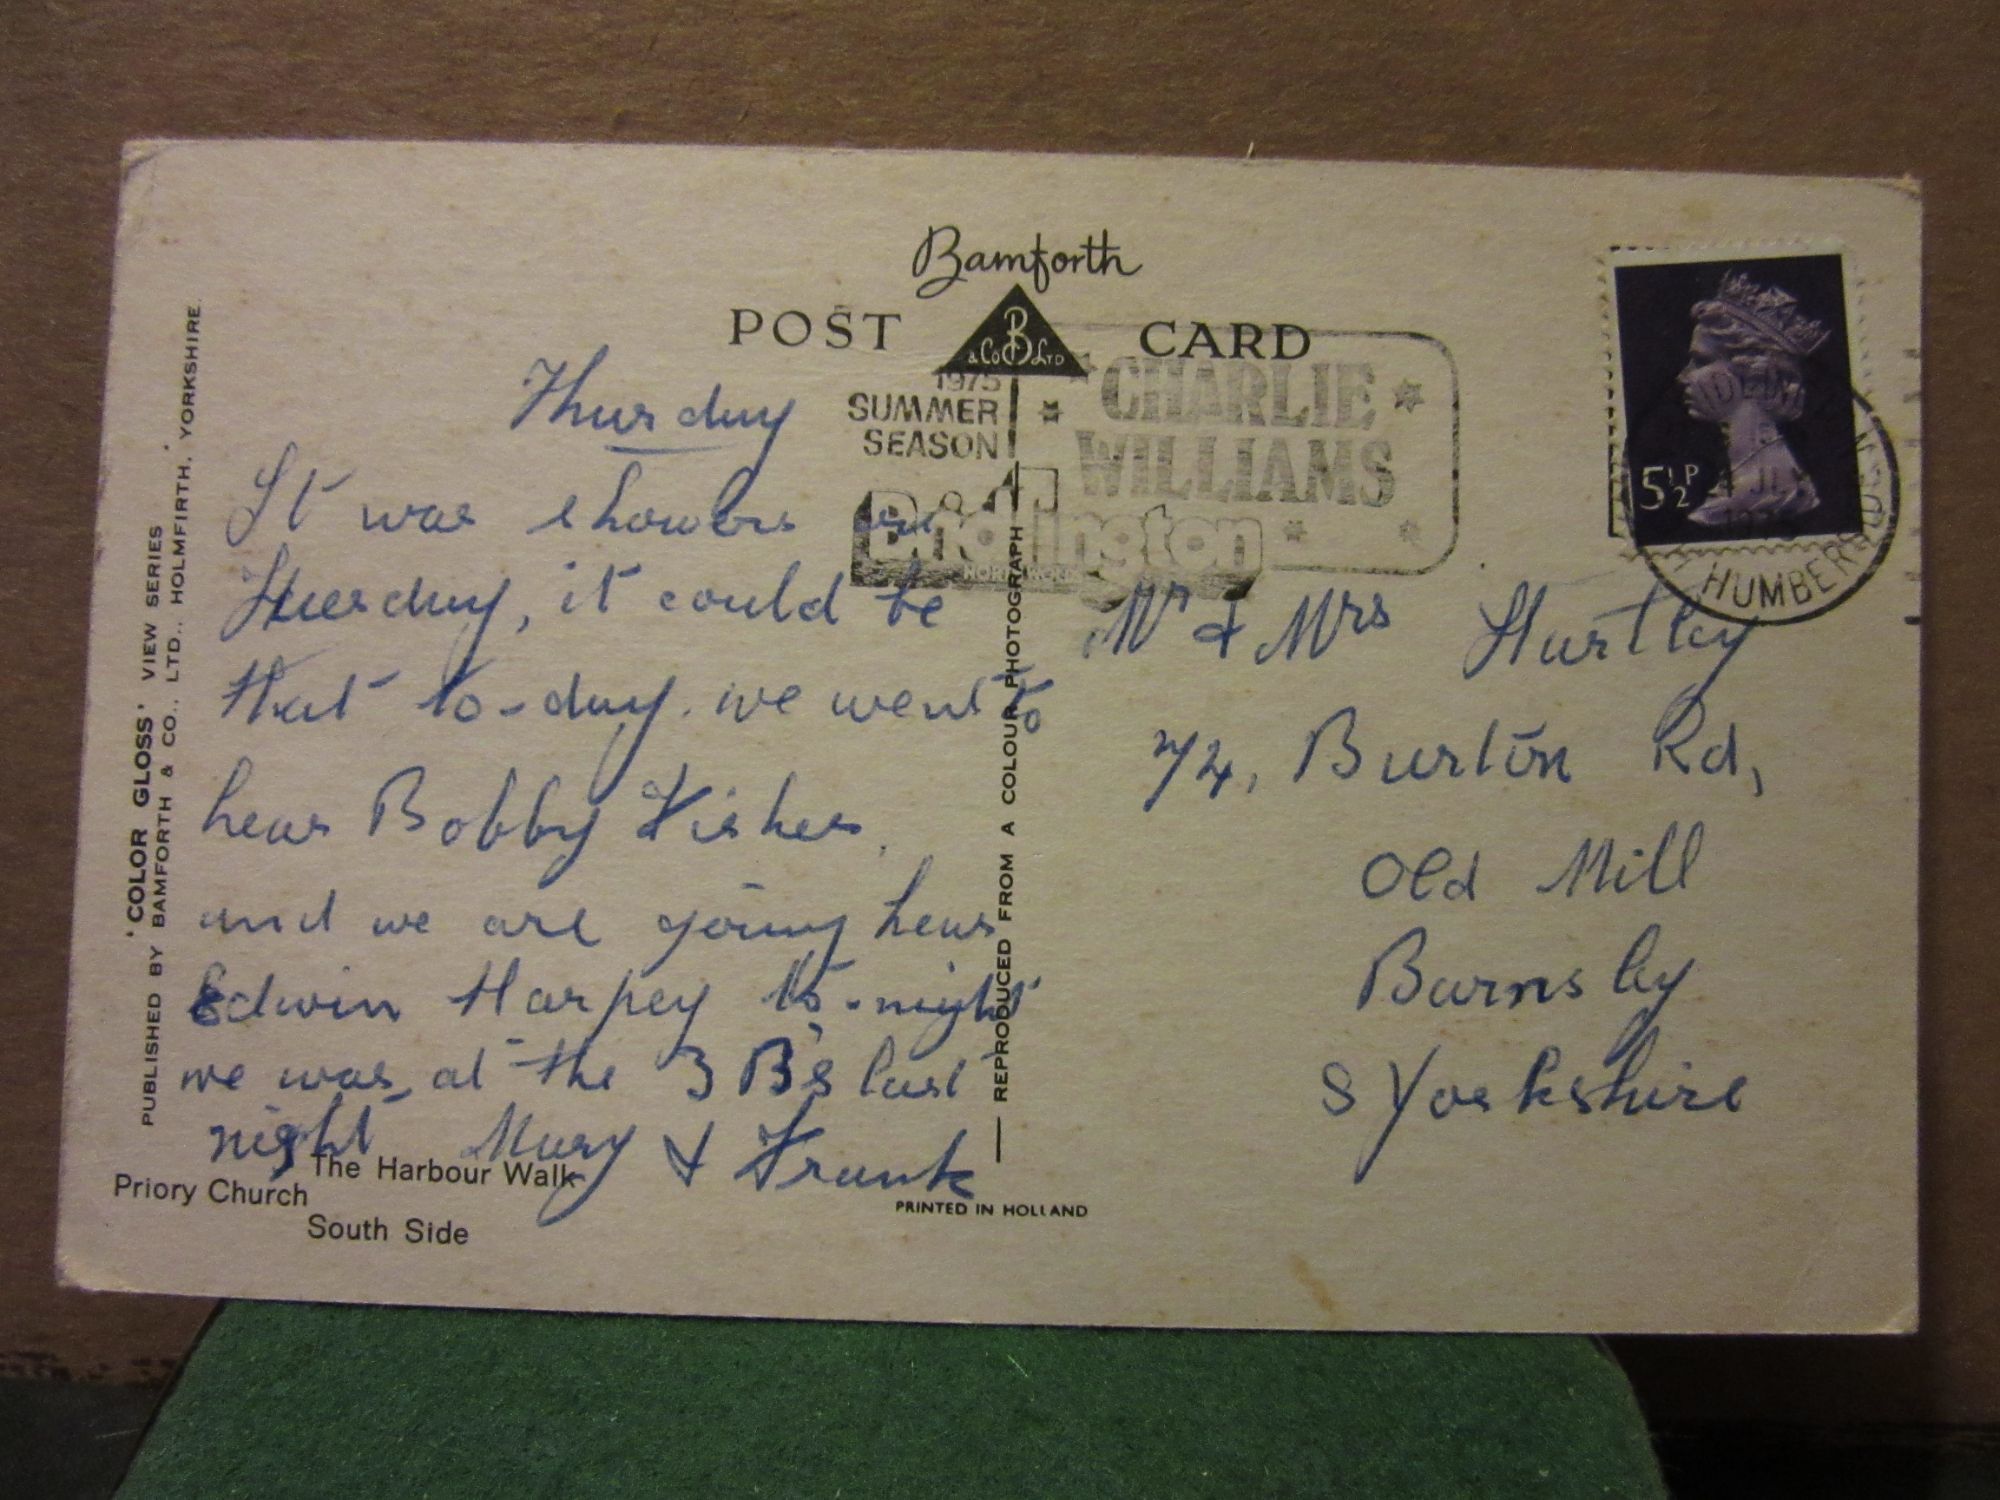 Bamforth
POST CARD
B
& Co LTD
1975
SUMMER
SEASON
CHARLIE
WILLIAMS
Bridlington
5½P
1975
HUMBERSIDE
Thursday
It was showers on
Tuesday, it could be
that to-day. we went to
hear Bobby Fisher.
and we are going hear
Edwin Harpey to-night
we was at the 3 B's last
night Mary & Frank
Mr & Mrs Hurtley
74, Burton Rd,
Old Mill
Barnsley
S Yorkshire
'COLOR GLOSS' VIEW SERIES
PUBLISHED BY BAMFORTH & CO., LTD., HOLMFIRTH, YORKSHIRE.
REPRODUCED FROM A COLOUR PHOTOGRAPH
The Harbour Walk
Priory Church
South Side
PRINTED IN HOLLAND